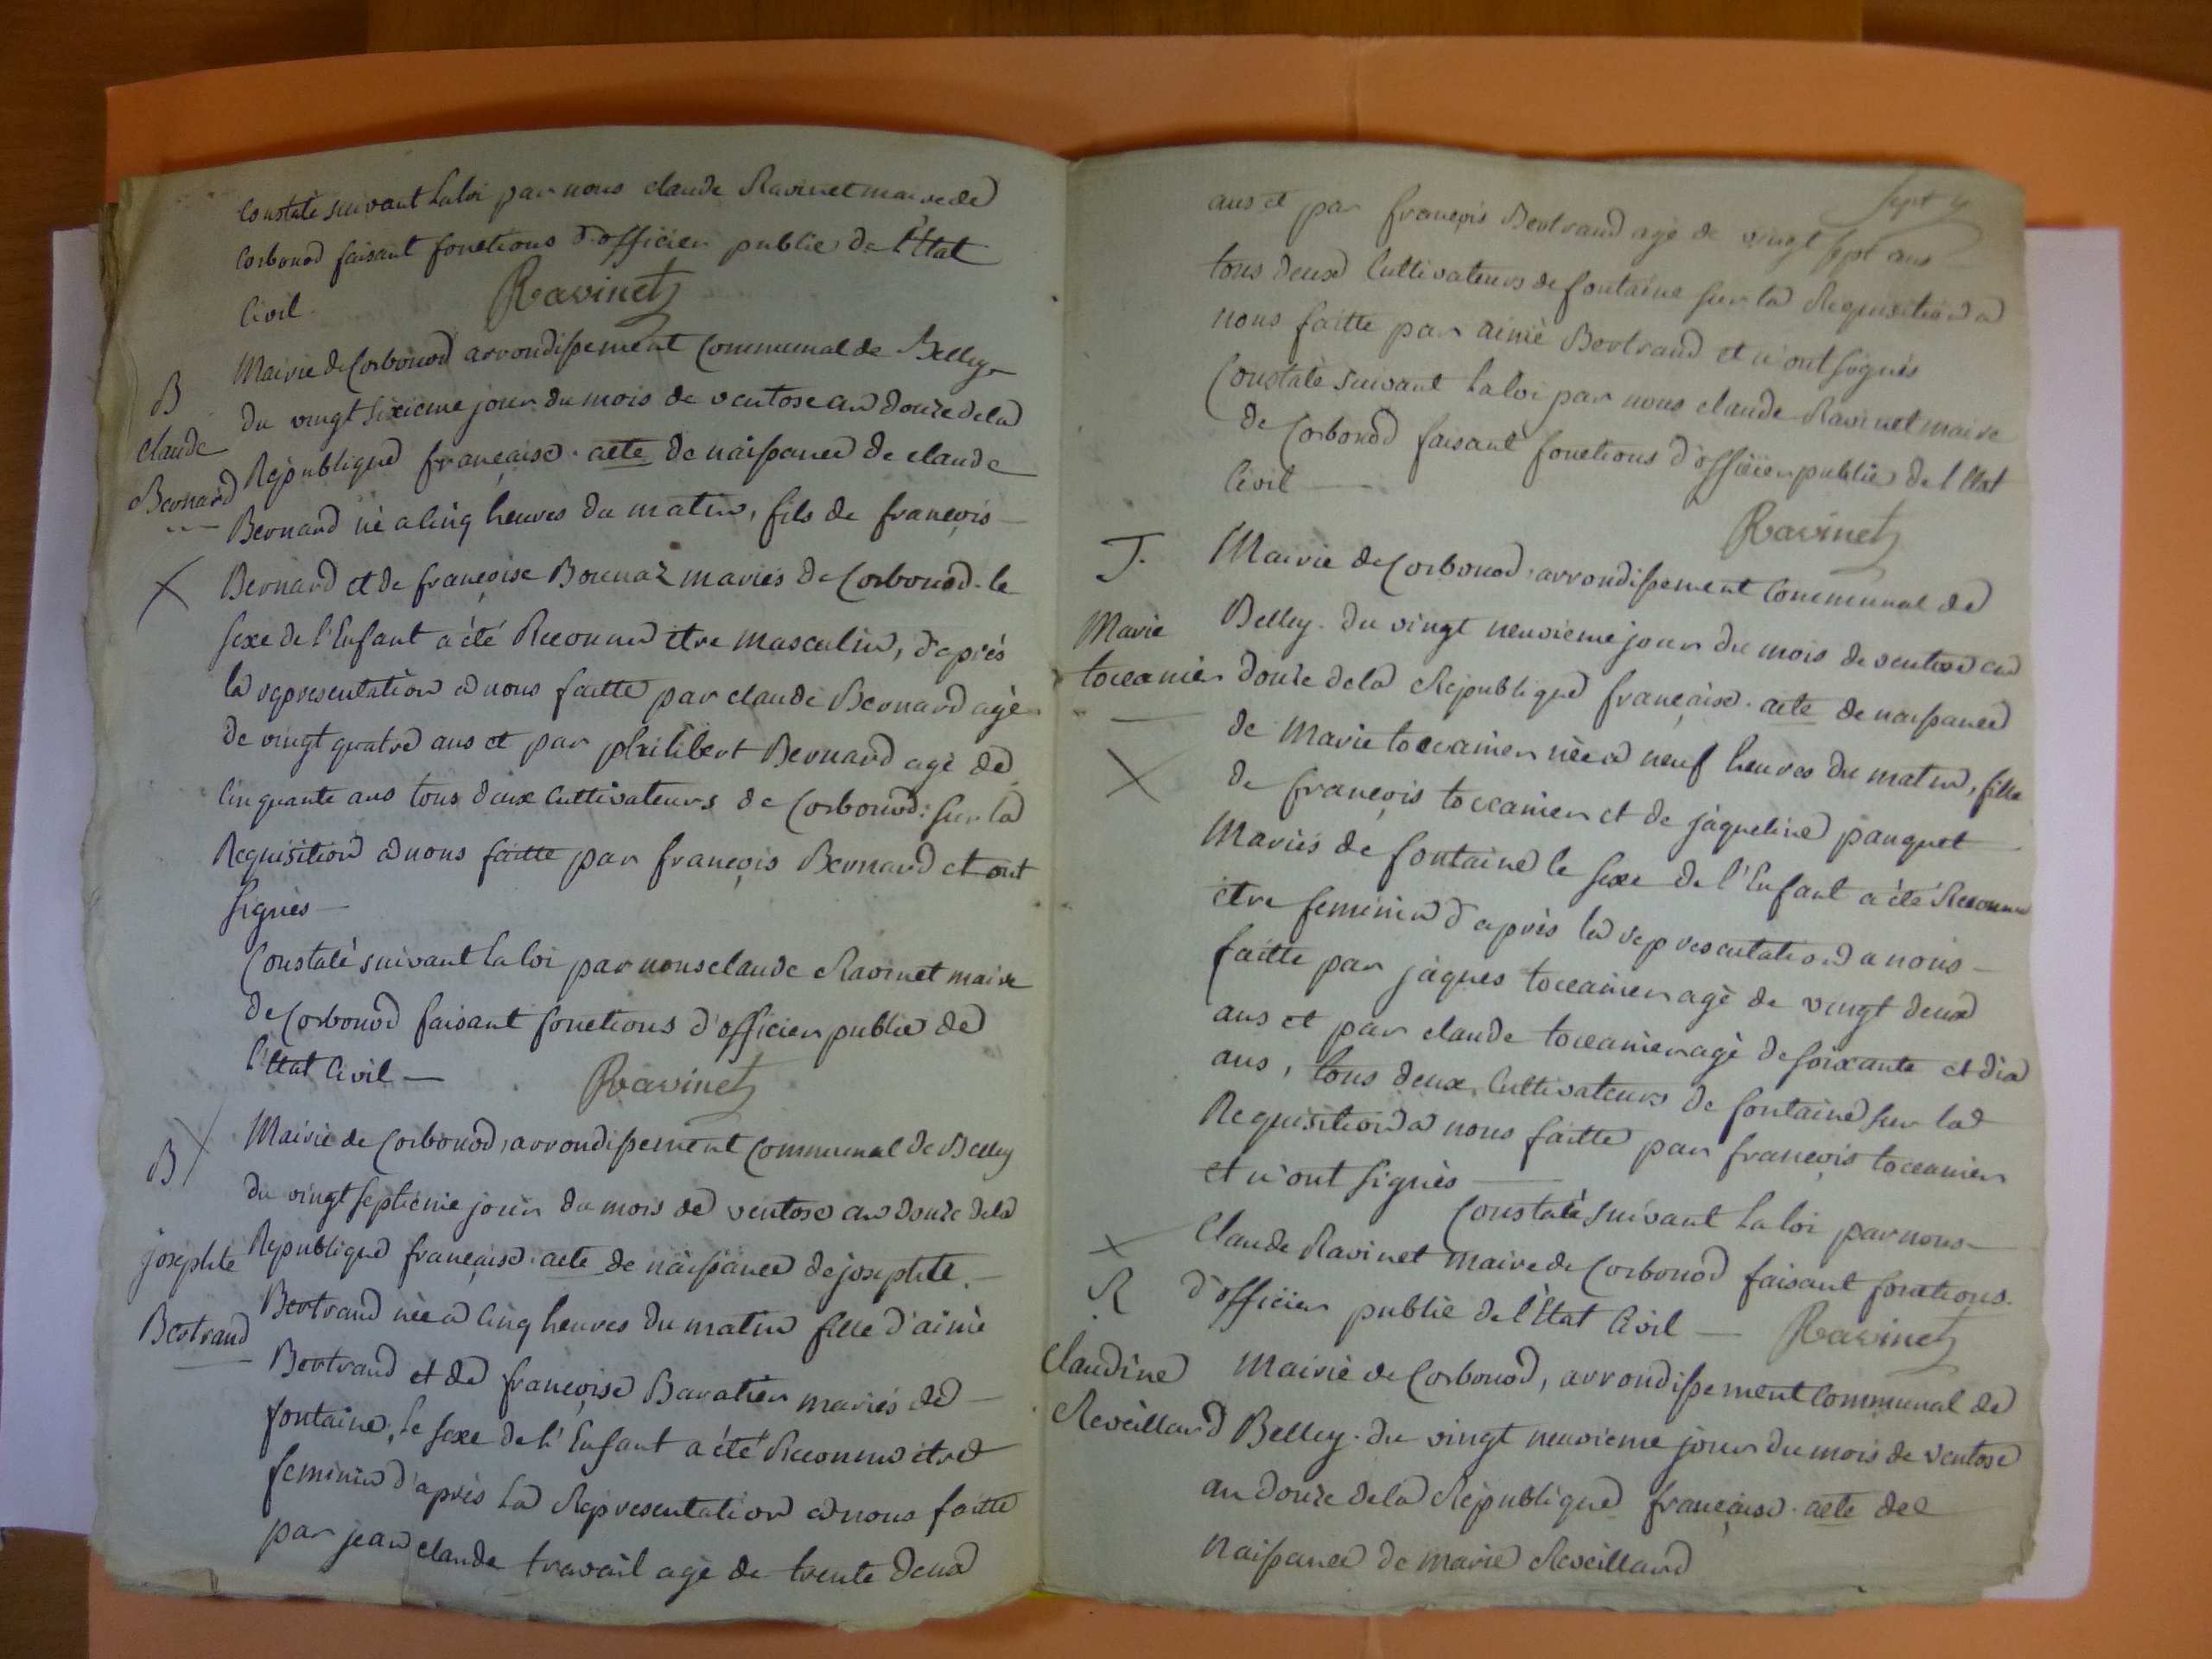 Constaté suivant la loi par nous claude Ravinet maire de
Corbonod faisant fonctions d'officier public de l'État
Civil.
Ravinet
Mairie de Corbonod arrondissement Communal de Belley
B
du vingt sixieme jour du mois de ventose an douze de la
claude
Republique française. acte de naissance de claude
Bernard
Bernard né a Cinq heures du matin, fils de françois
X
Bernard et de françoise Bonnaz mariés de Corbonod. le
sexe de l'Enfant a été Reconnu etre masculin, d'après
la representation a nous faitte par claude Bernard agé
de vingt quatre ans et par philibert Bernard agé de
Cinquante ans tous deux Cultivateurs de Corbonod: sur la
Requisition a nous faitte par françois Bernard et ont
signés
Constaté suivant la loi par nous claude Ravinet maire
de Corbonod faisant fonctions d'officier public de
l'Etat Civil
Ravinet
X
Mairie de Corbonod, arrondissement Communal de Belley
B
du vingt septieme jour du mois de ventose an douze de la
josephte
Republique française. acte de naissance de josephte
Bertrand née a Cinq heures du matin fille d'aimé
Bertrand
Bertrand et de françoise Baratier mariés de
fontaine, le sexe de l'Enfant a été Reconnu etre
feminin d'après la Representation a nous faitte
par jean claude travail agé de trente deux
sept
ans et par françois Bertrand agé de vingt sept ans
tous deux Cultivateurs de fontaine sur la Requisition a
nous faitte par aimé Bertrand et n'ont signés
Constaté suivant la loi par nous claude Ravinet maire
de Corbonod faisant fonctions d'officier public de l'Etat
Civil
Ravinet
T.
Mairie de Corbonod, arrondissement Communal de
Marie
Belley. du vingt neuvieme jour du mois de ventose an
toccanier
douze de la Republique française. acte de naissance
X
de Marie toccanier née a neuf heures du matin, fille
de françois toccanier et de jaqueline pauquet
Mariés de fontaine le sexe de l'Enfant a été Reconnu
etre feminin d'après la representation a nous
faitte par jaques toccanier agé de vingt deux
ans et par claude toccanier agé de soixante et dix
ans, tous deux Cultivateurs de fontaine sur la
Requisition a nous faitte par françois toccanier
et n'ont signés
Constaté suivant la loi par nous
X
Claude Ravinet maire de Corbonod faisant fonctions
R
d'officier public de l'État Civil
Ravinet
Claudine
Mairie de Corbonod, arrondissement Communal de
Reveillard
Belley. du vingt neuvieme jour du mois de ventose
an douze de la Republique française. acte de
Naissance de marie Reveillard